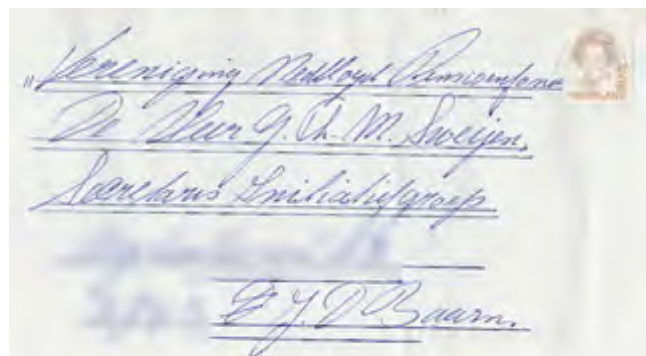 „Vereniging Nedlloyd Pensioenfonds
De Heer G. Ch. M. Sweijen,
Secretaris Initiatiefgroep
Baarn.